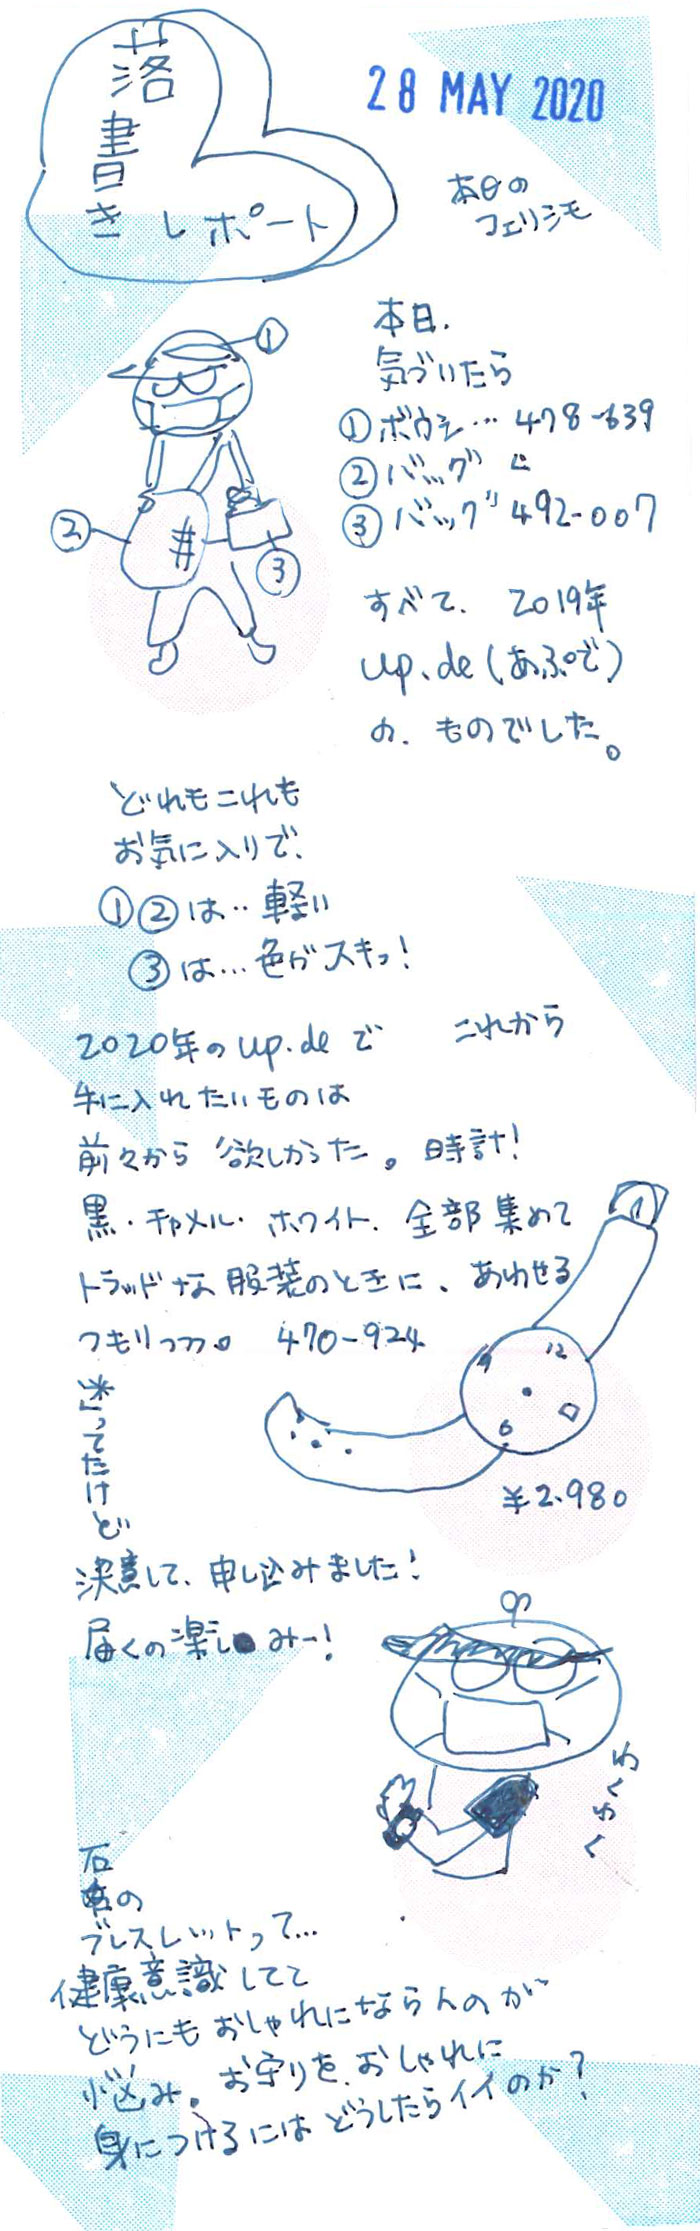 落書きレポート
28 MAY 2020
本日の
フェリシモ
本日、
気づいたら
①ボウシ…478-639
②バッグ 〃
③バッグ 492-007
すべて、2019年
up.de(あぷで)
の、ものでした。
①
②
③
どれもこれも
お気に入りで、
①②は‥軽い
③は…色がスキッ!
2020年のup.deで これから
手に入れたいものは
前々から欲しかった。時計!
黒・キャメル・ホワイト、全部集めて
トラッドな服装のときに、あわせる
つもりっっ。 470-924
9 12
6
¥2.980
迷ってたけど
決意して、申し込みました!
届くの楽しみー!
わくわく
石の
ブレスレットって…
健康意識してて
どうにもおしゃれにならんのが
悩み。お守りを、おしゃれに
身につけるにはどうしたらイイのか?